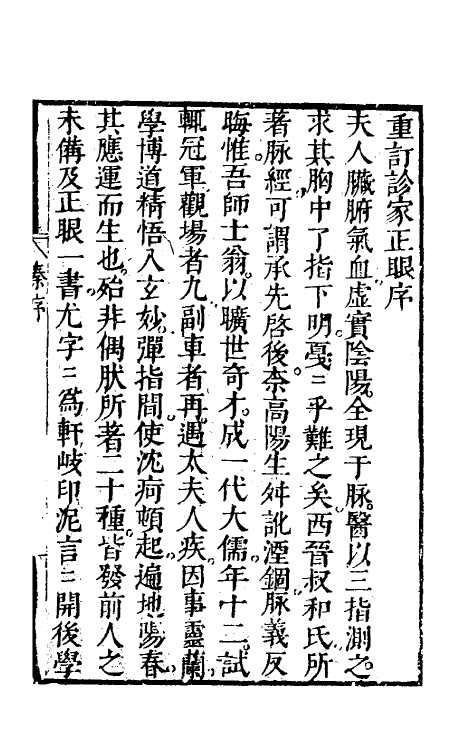 重訂診家正眼序
夫人臟腑氣血虛實陰陽全現于脉醫以三指測之
求其胸中了指下明戛〻乎難之矣西晉叔和氏所
著脉經可謂承先啓後奈高陽生舛訛湮錮脉義反
晦惟吾師士翁以曠世奇才成一代大儒年十二試
輒冠軍觀場者九副車者再遇太夫人疾因事靈蘭
學博道精悟入玄妙彈指間使沈疴頓起遍地陽春
其應運而生也殆非偶肰所著二十種皆發前人之
未備及正眼一書尤字〻為軒岐印泥言〻開後學
秦序